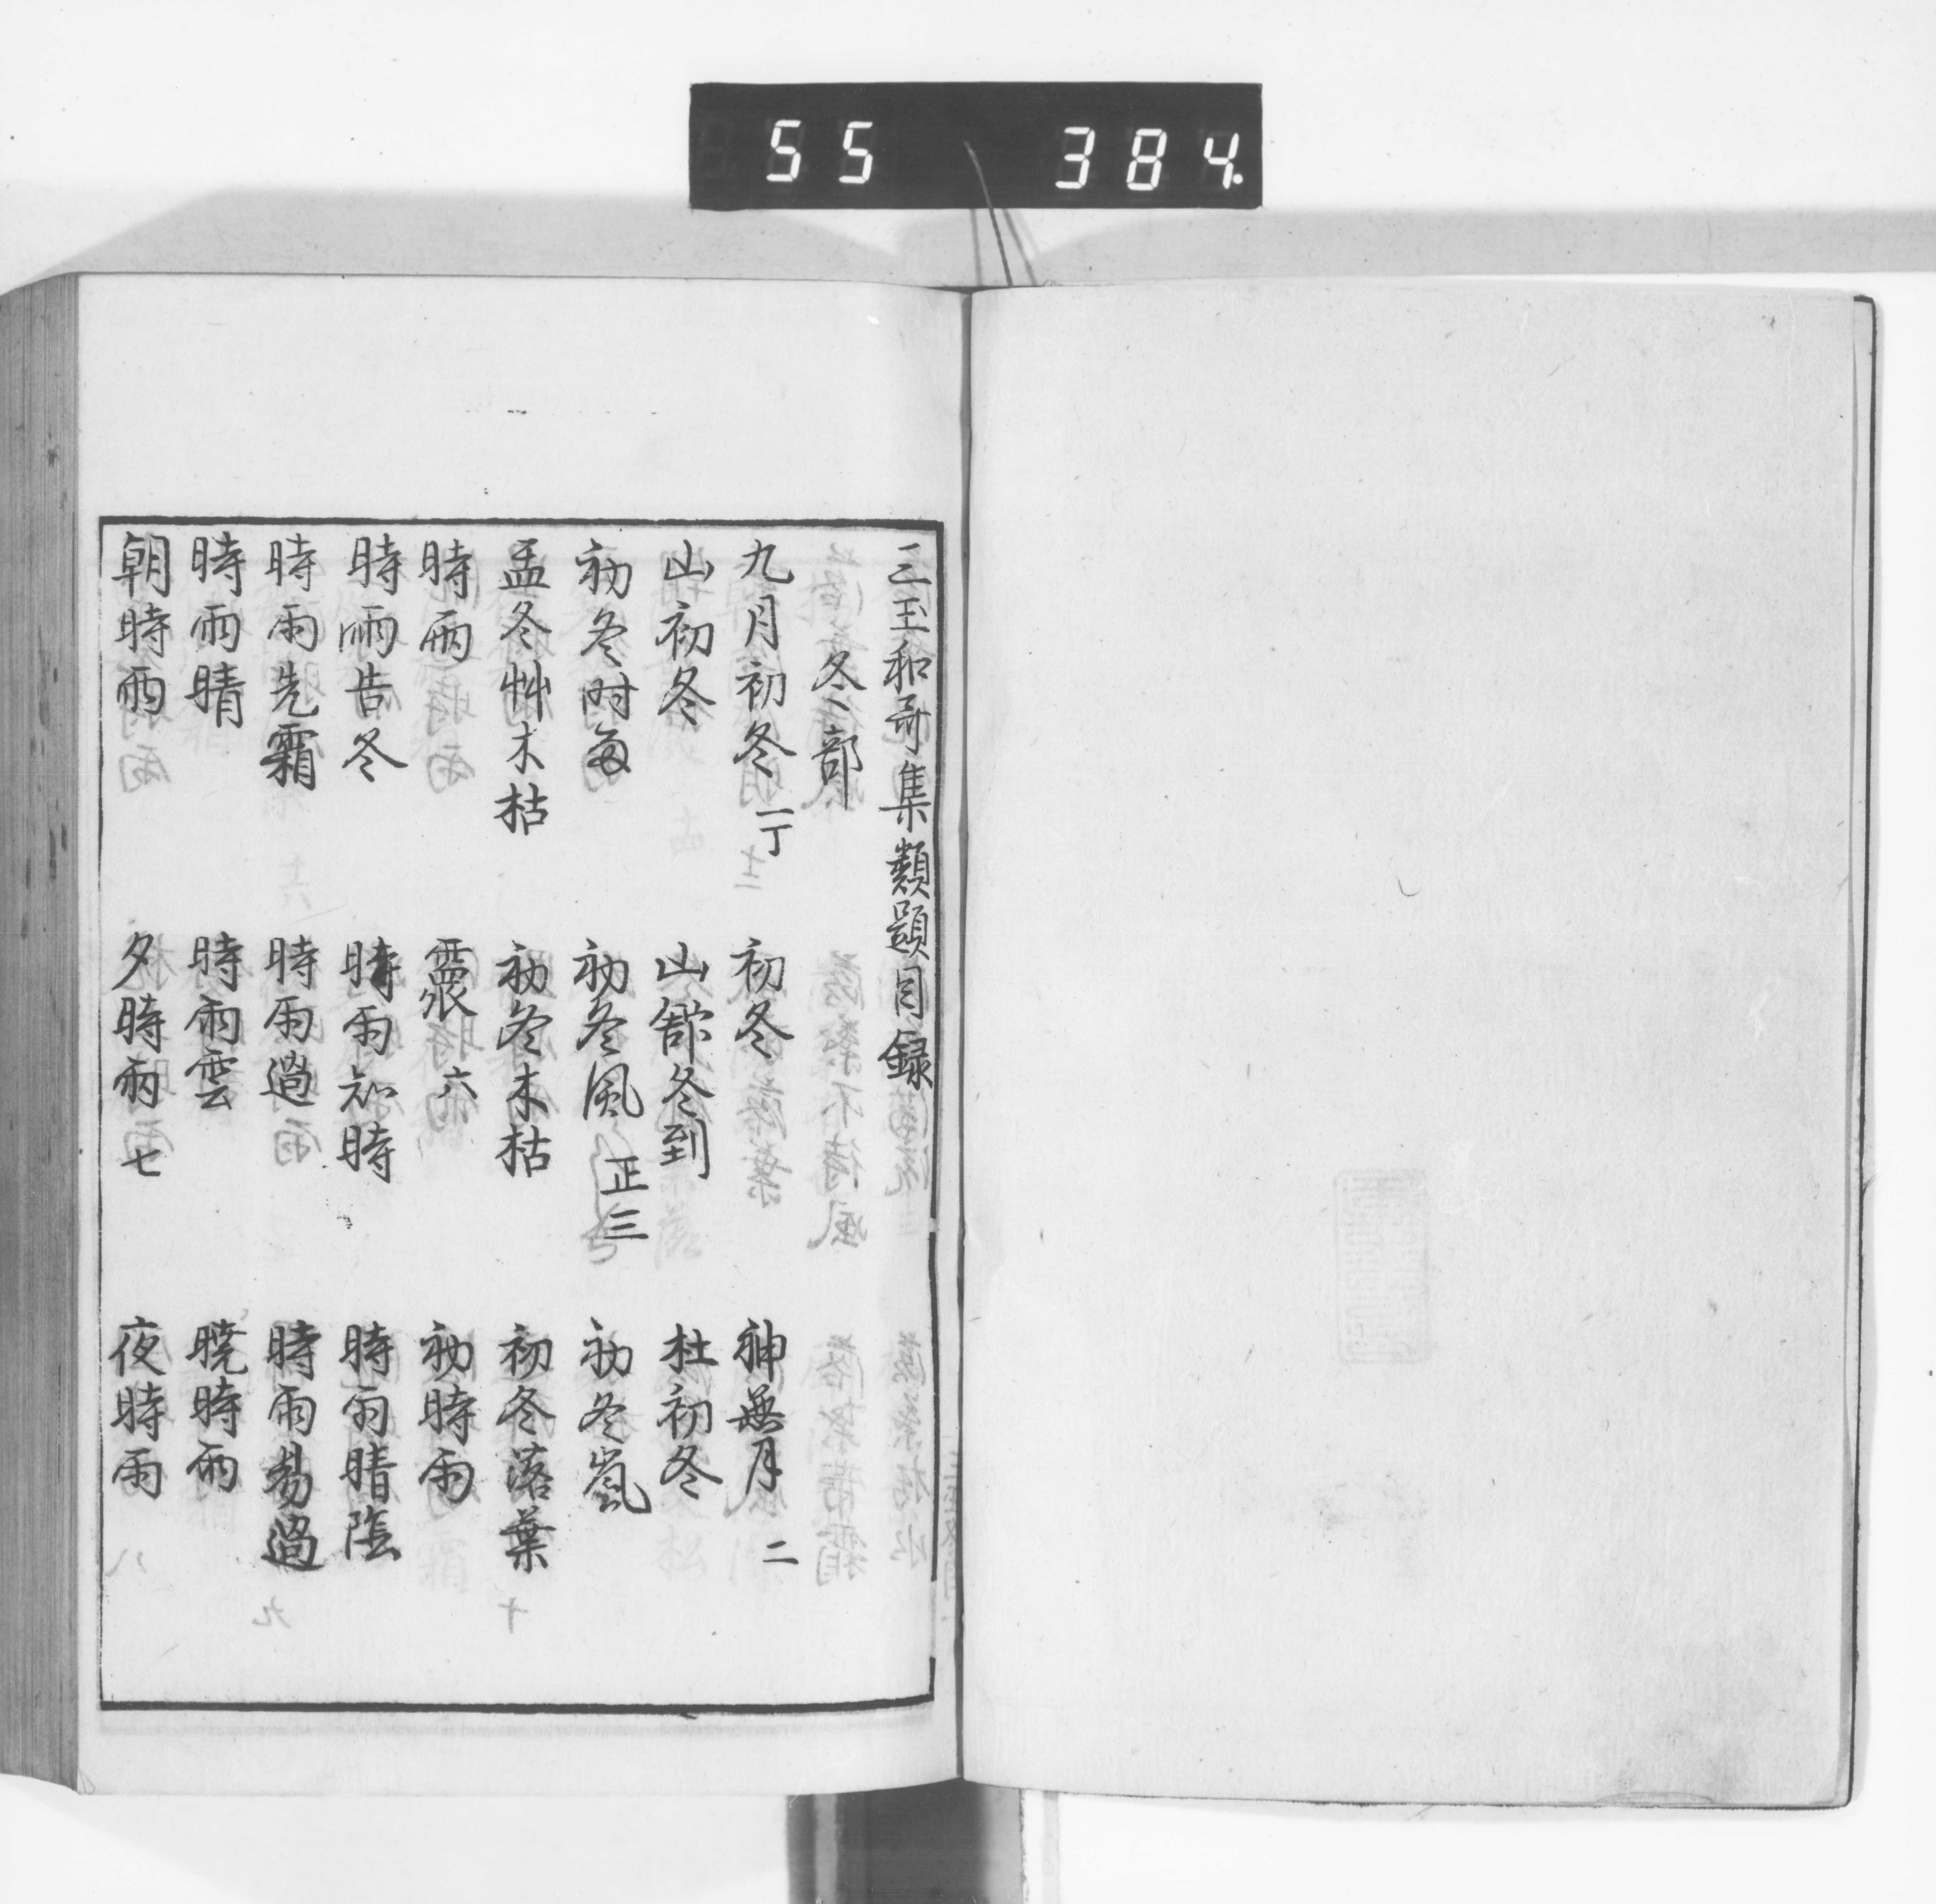 55 384.
三玉和哥集類題目録
冬部
九月初冬 一丁 初冬 神無月 二
山初冬 山館冬到 杜初冬
初冬时雨 初冬風 正三 初冬嵐
孟冬艸木枯 初冬木枯 初冬落葉
時雨 六 初時雨
時雨告冬 時雨知時 時雨晴陰
時雨先霜 時雨過 時雨易過
時雨晴 時雨雲 暁時雨
朝時雨 夕時雨 七 夜時雨